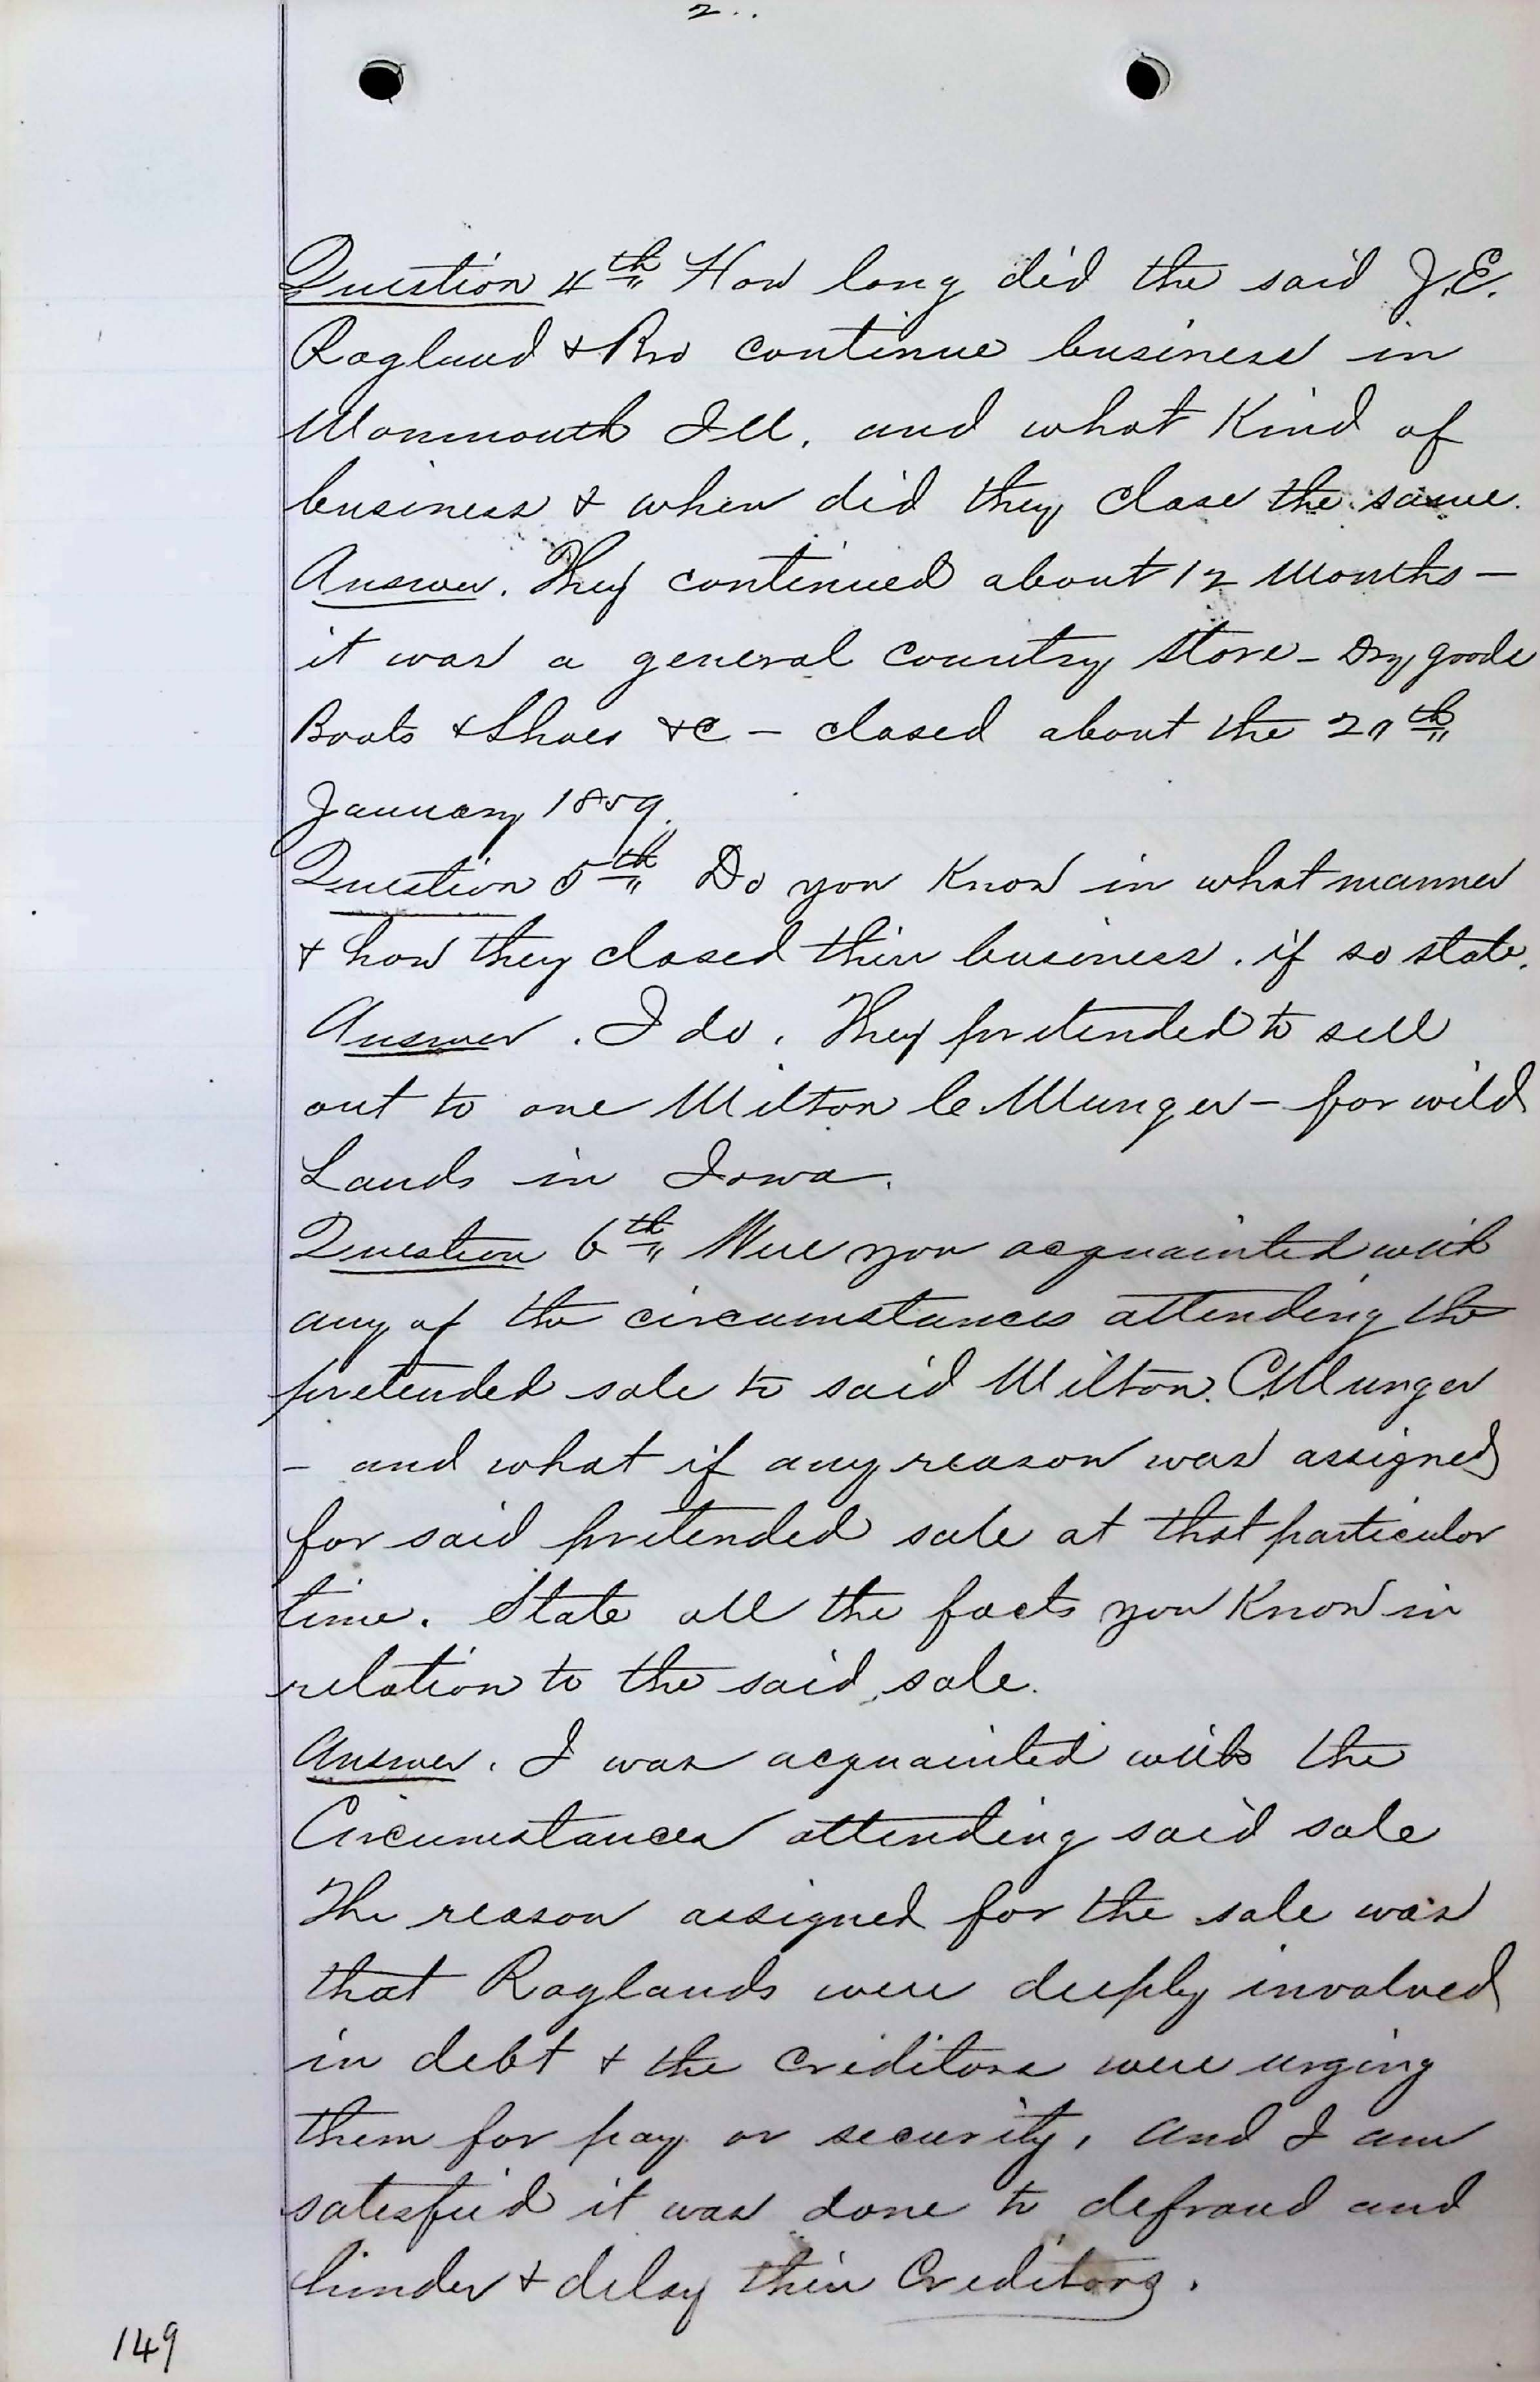 2..
Question 4th How long did the said J.E.
Ragland & Bro continue business in
Monmouth Ill. and what Kind of
business & when did they close the same.
Answer. They continued about 12 Months —
it was a general country store - Dry goods
Boots & Shoes &c — closed about the 20th
January 1859.
Question 5th Do you Know in what manner
& how they closed their business. if so state.
Answer. I do. They pretended to sell
out to one Milton C. Munger — for wild
Lands in Iowa.
Question 6th Were you acquainted with
any of the circumstances attending the
pretended sale to said Milton. C. Munger
— and what if any reason was assigned
for said pretended sale at that particular
time. State all the facts you Know in
relation to the said sale.
Answer. I was acquainted with the
Circumstances attending said sale
The reason assigned for the sale was
that Raglands were deeply involved
in debt & the Creditors were urging
them for pay or security, and I am
satisfied it was done to defraud and
hinder & delay their Creditors.
149